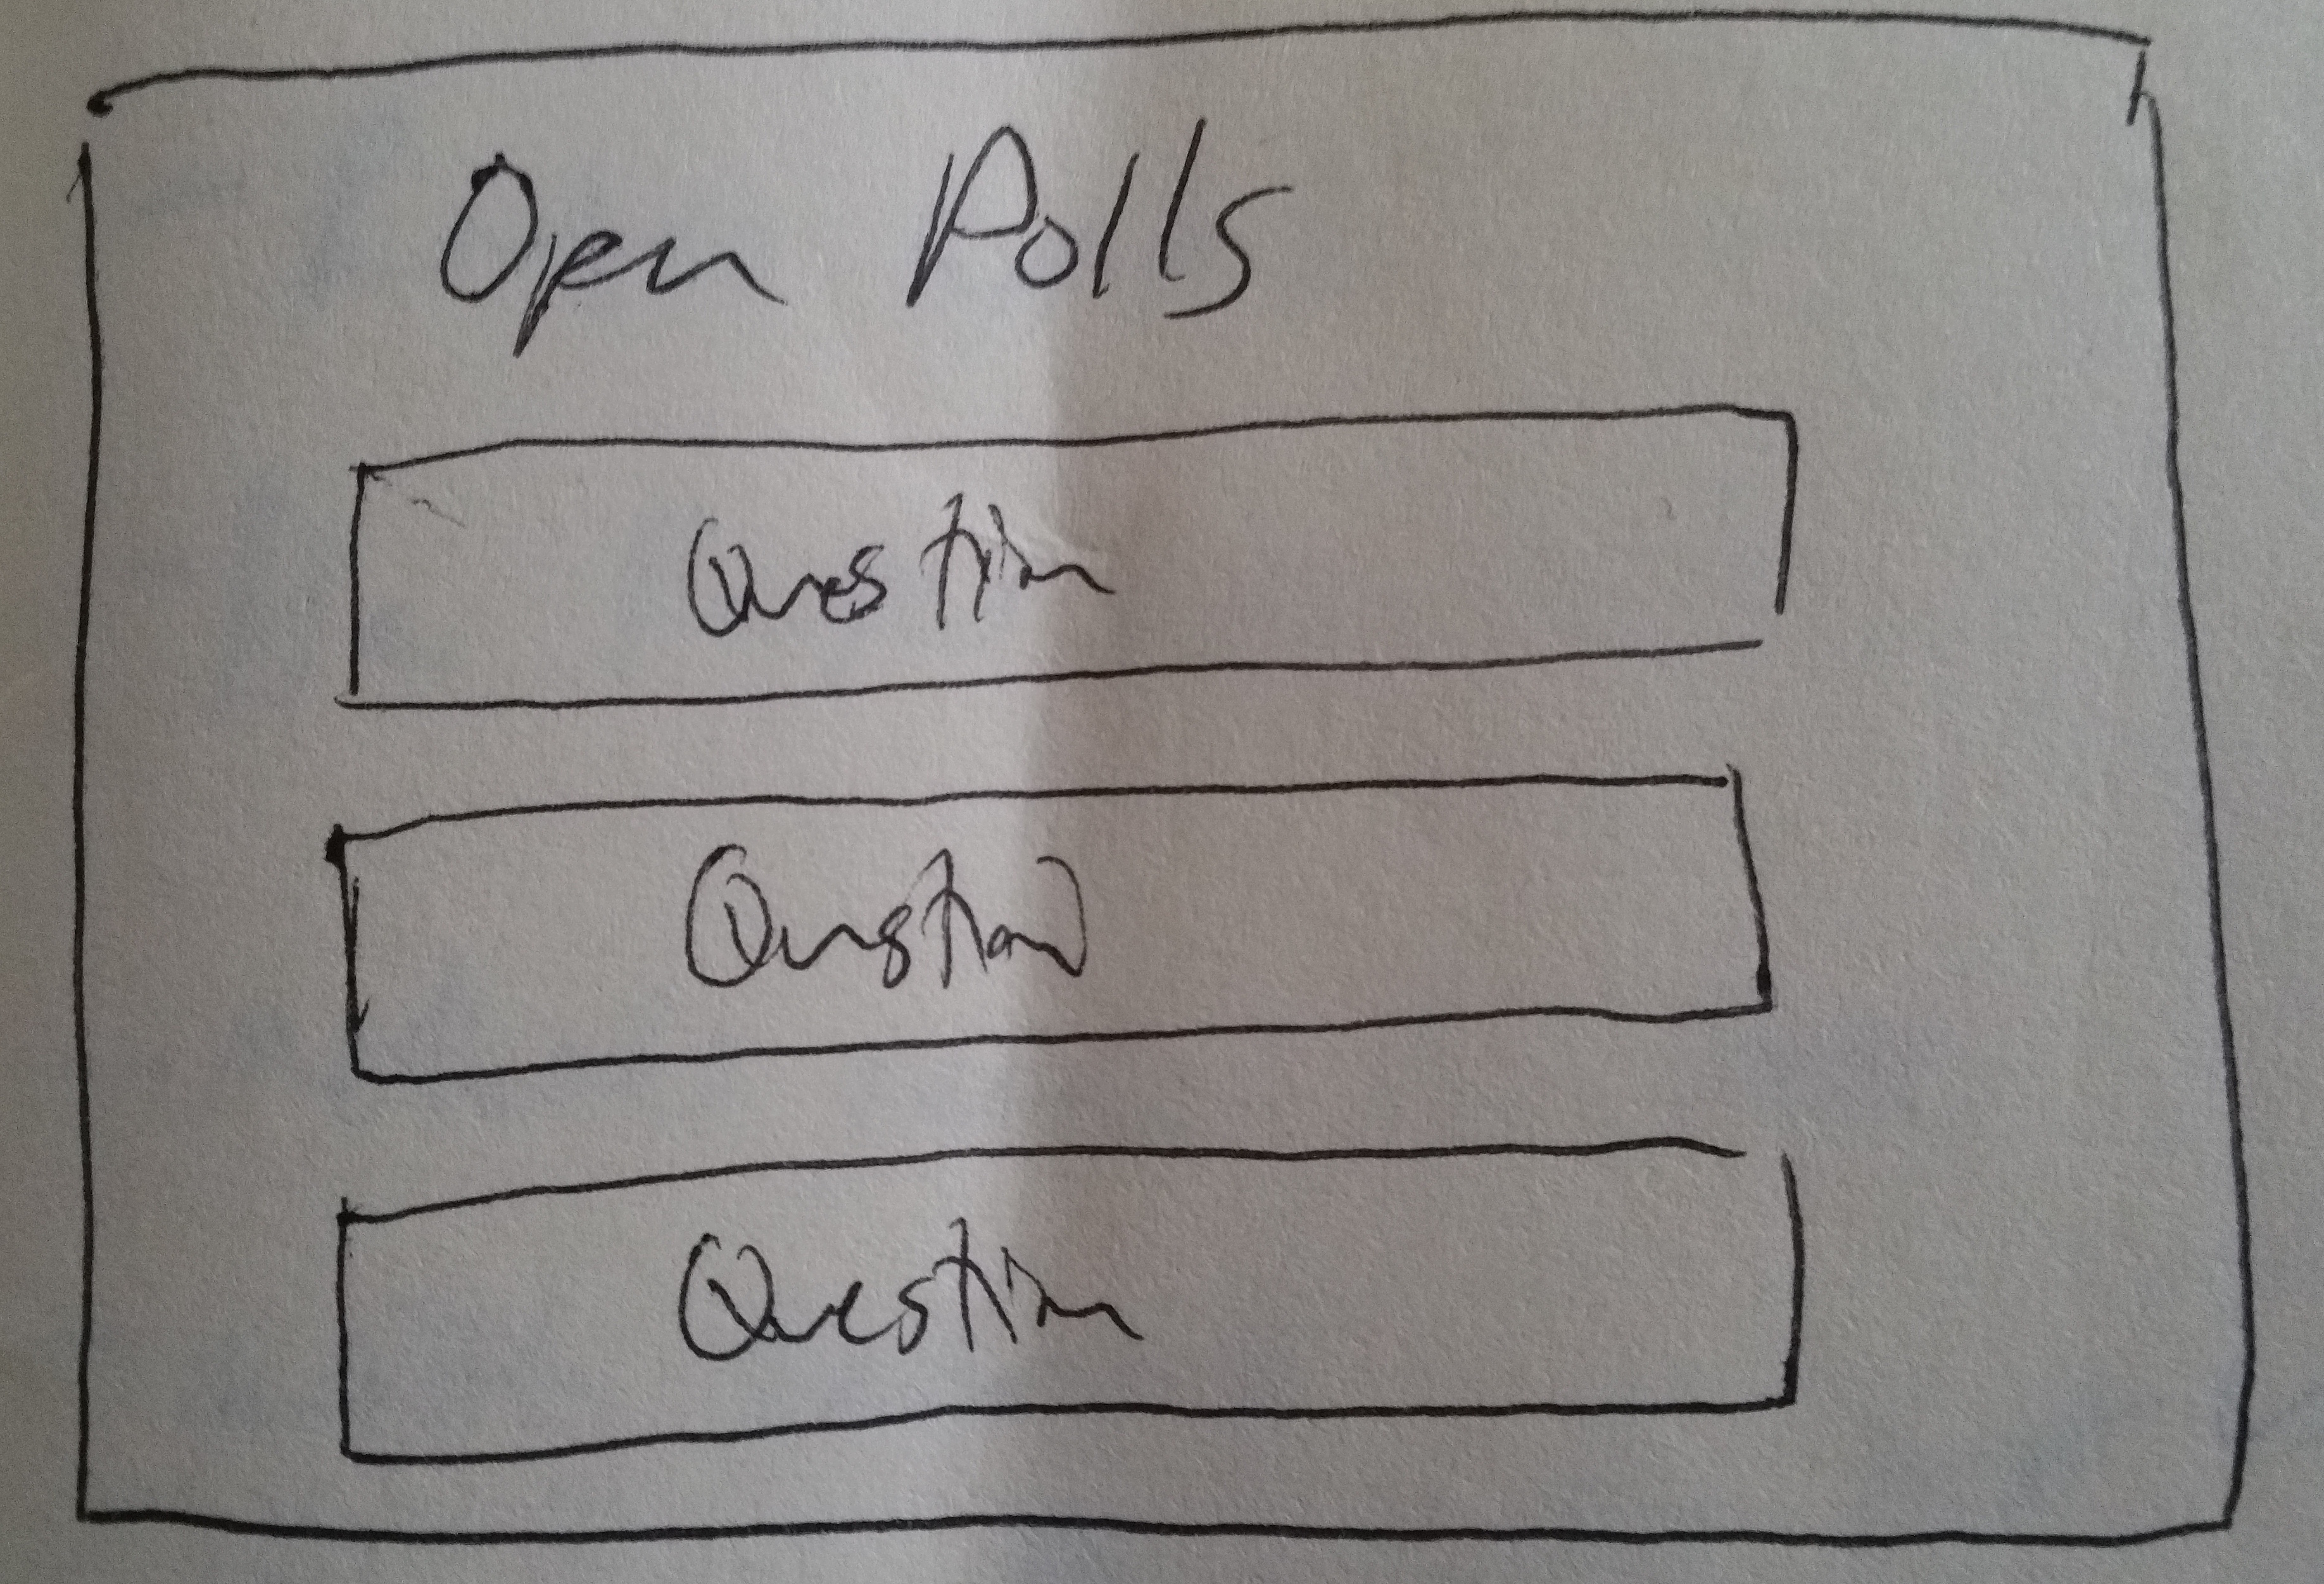 Open Polls
Question
Question
Question